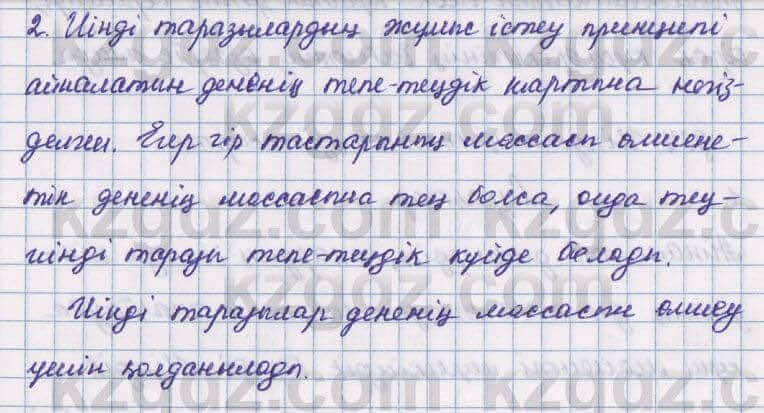 2. Иінді таразылардың жұмыс істеу принципі
айналатын дененің тепе-теңдік шартына негіз-
делген. Егер гір тастарының массасы өлшене-
тін дененің массасына тең болса, онда тең-
иінді таразы тепе-теңдік күйде болады.
Иінді таразылар дененің массасын өлшеу
үшін қолданылады.
kzgdz.com